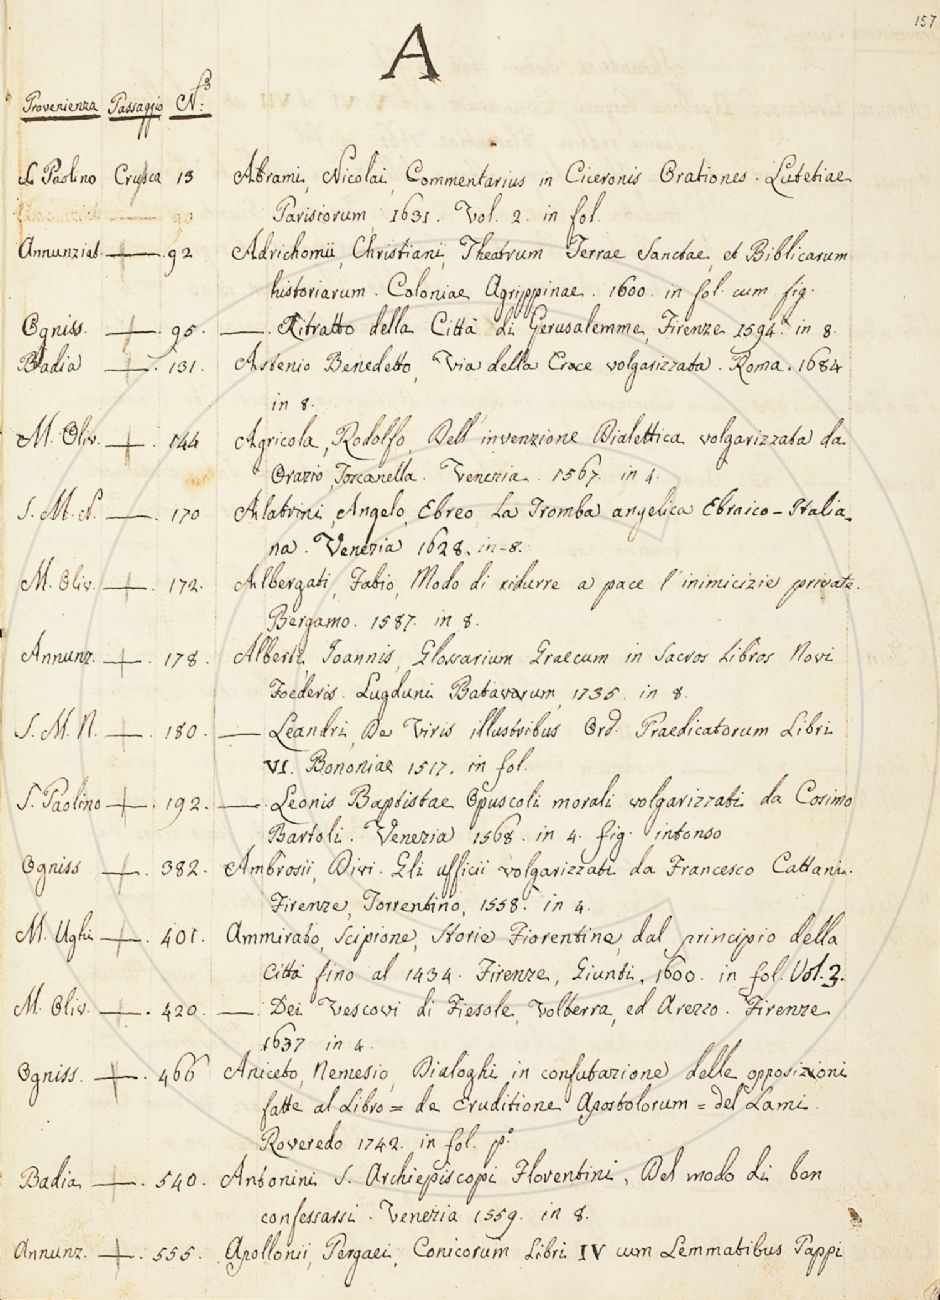 157
A
Provenienza Passaggio N:
S. Paolino Crusca 13 Abrami, Nicolai, Commentarius in Ciceronis Orationes. Lutetiae
Parisiorum 1631. Vol. 2. in fol.
Annunziat. 92 Adrichomii, Christiani, Theatrum Terrae Sanctae, et Biblicarum
historiarum. Coloniae Agrippinae. 1600. in fol. cum fig.
Ogniss. 95. Ritratto della Città di Gerusalemme, Firenze 1594. in 8.
Badia 131. Benedetto, Via della Croce volgarizzata. Roma. 1684
in 8.
M. Oliv. 144 Agricola, Rodolfo, Dell'invenzione Dialettica volgarizzata da
Orazio Toscanella. Venezia. 1567. in 4.
S. M. N. 170 Alatrini, Angelo, Ebreo, La Tromba angelica Ebraico-Italia-
na. Venezia 1628. in-8.
M. Oliv. 172. Albergati, Fabio, Modo di ridurre a pace l'inimicizie private.
Bergamo. 1587. in 8.
Annunz. 178. Alberti, Joannis, Glossarium Graecum in Sacros Libros Novi
Foederis. Lugduni Batavorum, 1735. in 8.
S. M. N. 180. Leandri, De Viris illustribus Ord. Praedicatorum Libri
VI. Bononiae 1517. in fol.
S. Paolino 192. Leonis Baptistae Opuscoli morali volgarizzati da Cosimo
Bartoli. Venezia 1568. in 4. fig. intonso
Ogniss 382. Ambrosii, Divi. Gli ufficii volgarizzati da Francesco Cattani.
Firenze, Torrentino, 1558. in 4.
M. Ughi 401. Ammirato, Scipione, Storie Fiorentine, dal principio della
Città fino al 1434. Firenze, Giunti, 1600. in fol. Vol. 2.
M. Oliv. 420. Dei Vescovi di Fiesole, Volterra, ed Arezzo. Firenze
1637 in 4.
Ogniss. 466 Aniceto, Nemesio, Dialoghi in confutazione delle opposizioni
fatte al Libro = de Eruditione Apostolorum = del Lami.
Roveredo 1742. in fol. p.º
Badia 540. Antonini S. Archiepiscopi Florentini, Del modo di ben
confessarsi. Venezia 1559. in 8.
Annunz. 555. Apollonii, Pergaei, Conicorum Libri IV cum Lemmatibus Pappi